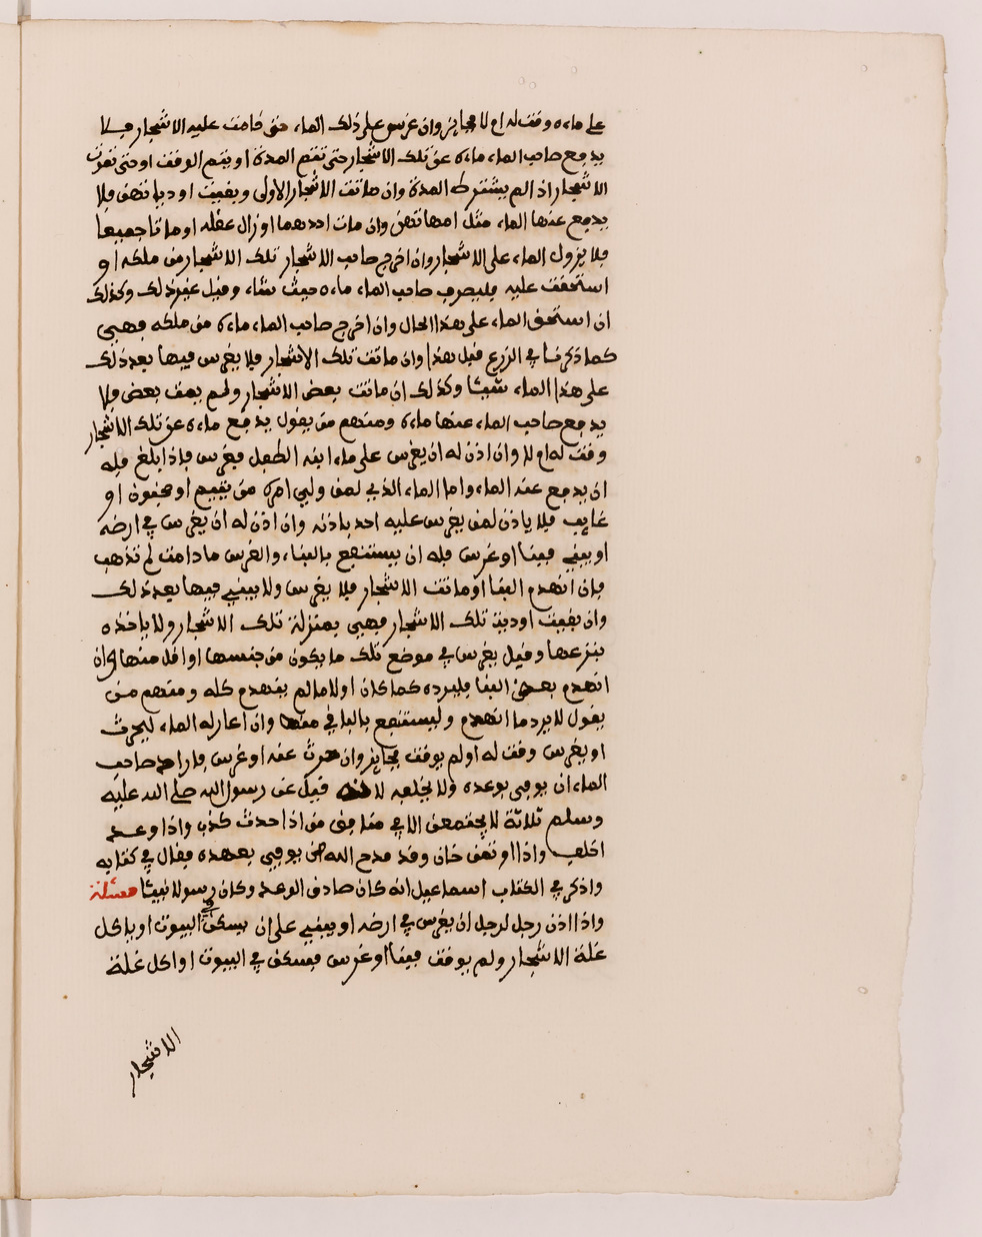 على ماءه وقت له ام لا فجايز وان غرس على ذلك الماء حتى قامت عليه الاشجار فلا
يدفع صاحب الماء ماءه عن تلك الاشجار حتى تتم المدة او يتم الوقت او حتى تموت
الاشجار اذا لم يشترط المدة وان ماتت الاشجار الاولى وبقيت اوديانهن فلا
يدفع عنها الماء مثل امهاتهن وان مات احدهما او زال عقله او ماتا جميعا
فلا يزول الماء على الاشجار وان اخرج صاحب الاشجار تلك الاشجار من ملكه او
استحقت عليه فليصرف صاحب الماء ماءه حيث شاء وقيل غير ذلك وكذلك
ان استحق الماء على هذا الحال وان اخرج صاحب الماء ماءه من ملكه فهي
كما ذكرنا في الزرع قبل هذا وان ماتت تلك الاشجار فلا يغرس فيها بعد ذلك
على هذا الماء شيئا وكذلك ان ماتت بعض الاشجار ولم يمت بعض فلا
يدفع صاحب الماء عنها ماءه ومنهم من يقول يدفع ماءه عن تلك الاشجار
وقت له ام لا وان اذن له ان يغرس على ماء ابنه الطفل فغرس فاذا بلغ فله
ان يدفع عنه الماء واما الماء الذي لمن ولي امره من يتيم او مجنون او
غايب فلا ياذن لمن يغرس عليه احد باذنه وان اذن له ان يغرس في ارضه
او يبني فبنا او غرس فله ان يستنفع بالبناء والغرس ما دامت لم تذهب
فان انهدم البنا او ماتت الاشجار فلا يغرس ولا يبني فيها بعد ذلك
وان بقيت اودية تلك الاشجار فهي بمنزلة تلك الاشجار ولا ياخذه
بنزعها وقيل يغرس في موضع تلك ما يكون من جنسها او اقل منها وان
انهدم بعض البنا فليرده كما كان اولا ما لم ينهدم كله ومنهم من
يقول لا يرد ما انهدم وليستنفع بالباقي منها وان اعار له الماء ليحرث
او يغرس وقت له او لم يوقت فجايز وان حرث عنه او غرس فاراد صاحب
الماء ان يوفي بوعده ولا يخلفه لانه قيل عن رسول الله صلى الله عليه
وسلم ثلاثة لا يجتمعن الا في منافق من اذا حدث كذب واذا وعد
اخلف واذا اوتمن خان وقد مدح الله من يوفي بعهده فقال في كتابه
واذكر في الكتاب اسماعيل انه كان صادق الوعد وكان رسولا نبيئا مسئلة
واذا اذن رجل لرجل ان يغرس في ارضه او يبني على ان يسكن في البيوت او ياكل
غلة الاشجار ولم يوقت فبنا او غرس فسكن في البيوت او اكل غلة
الاشجار